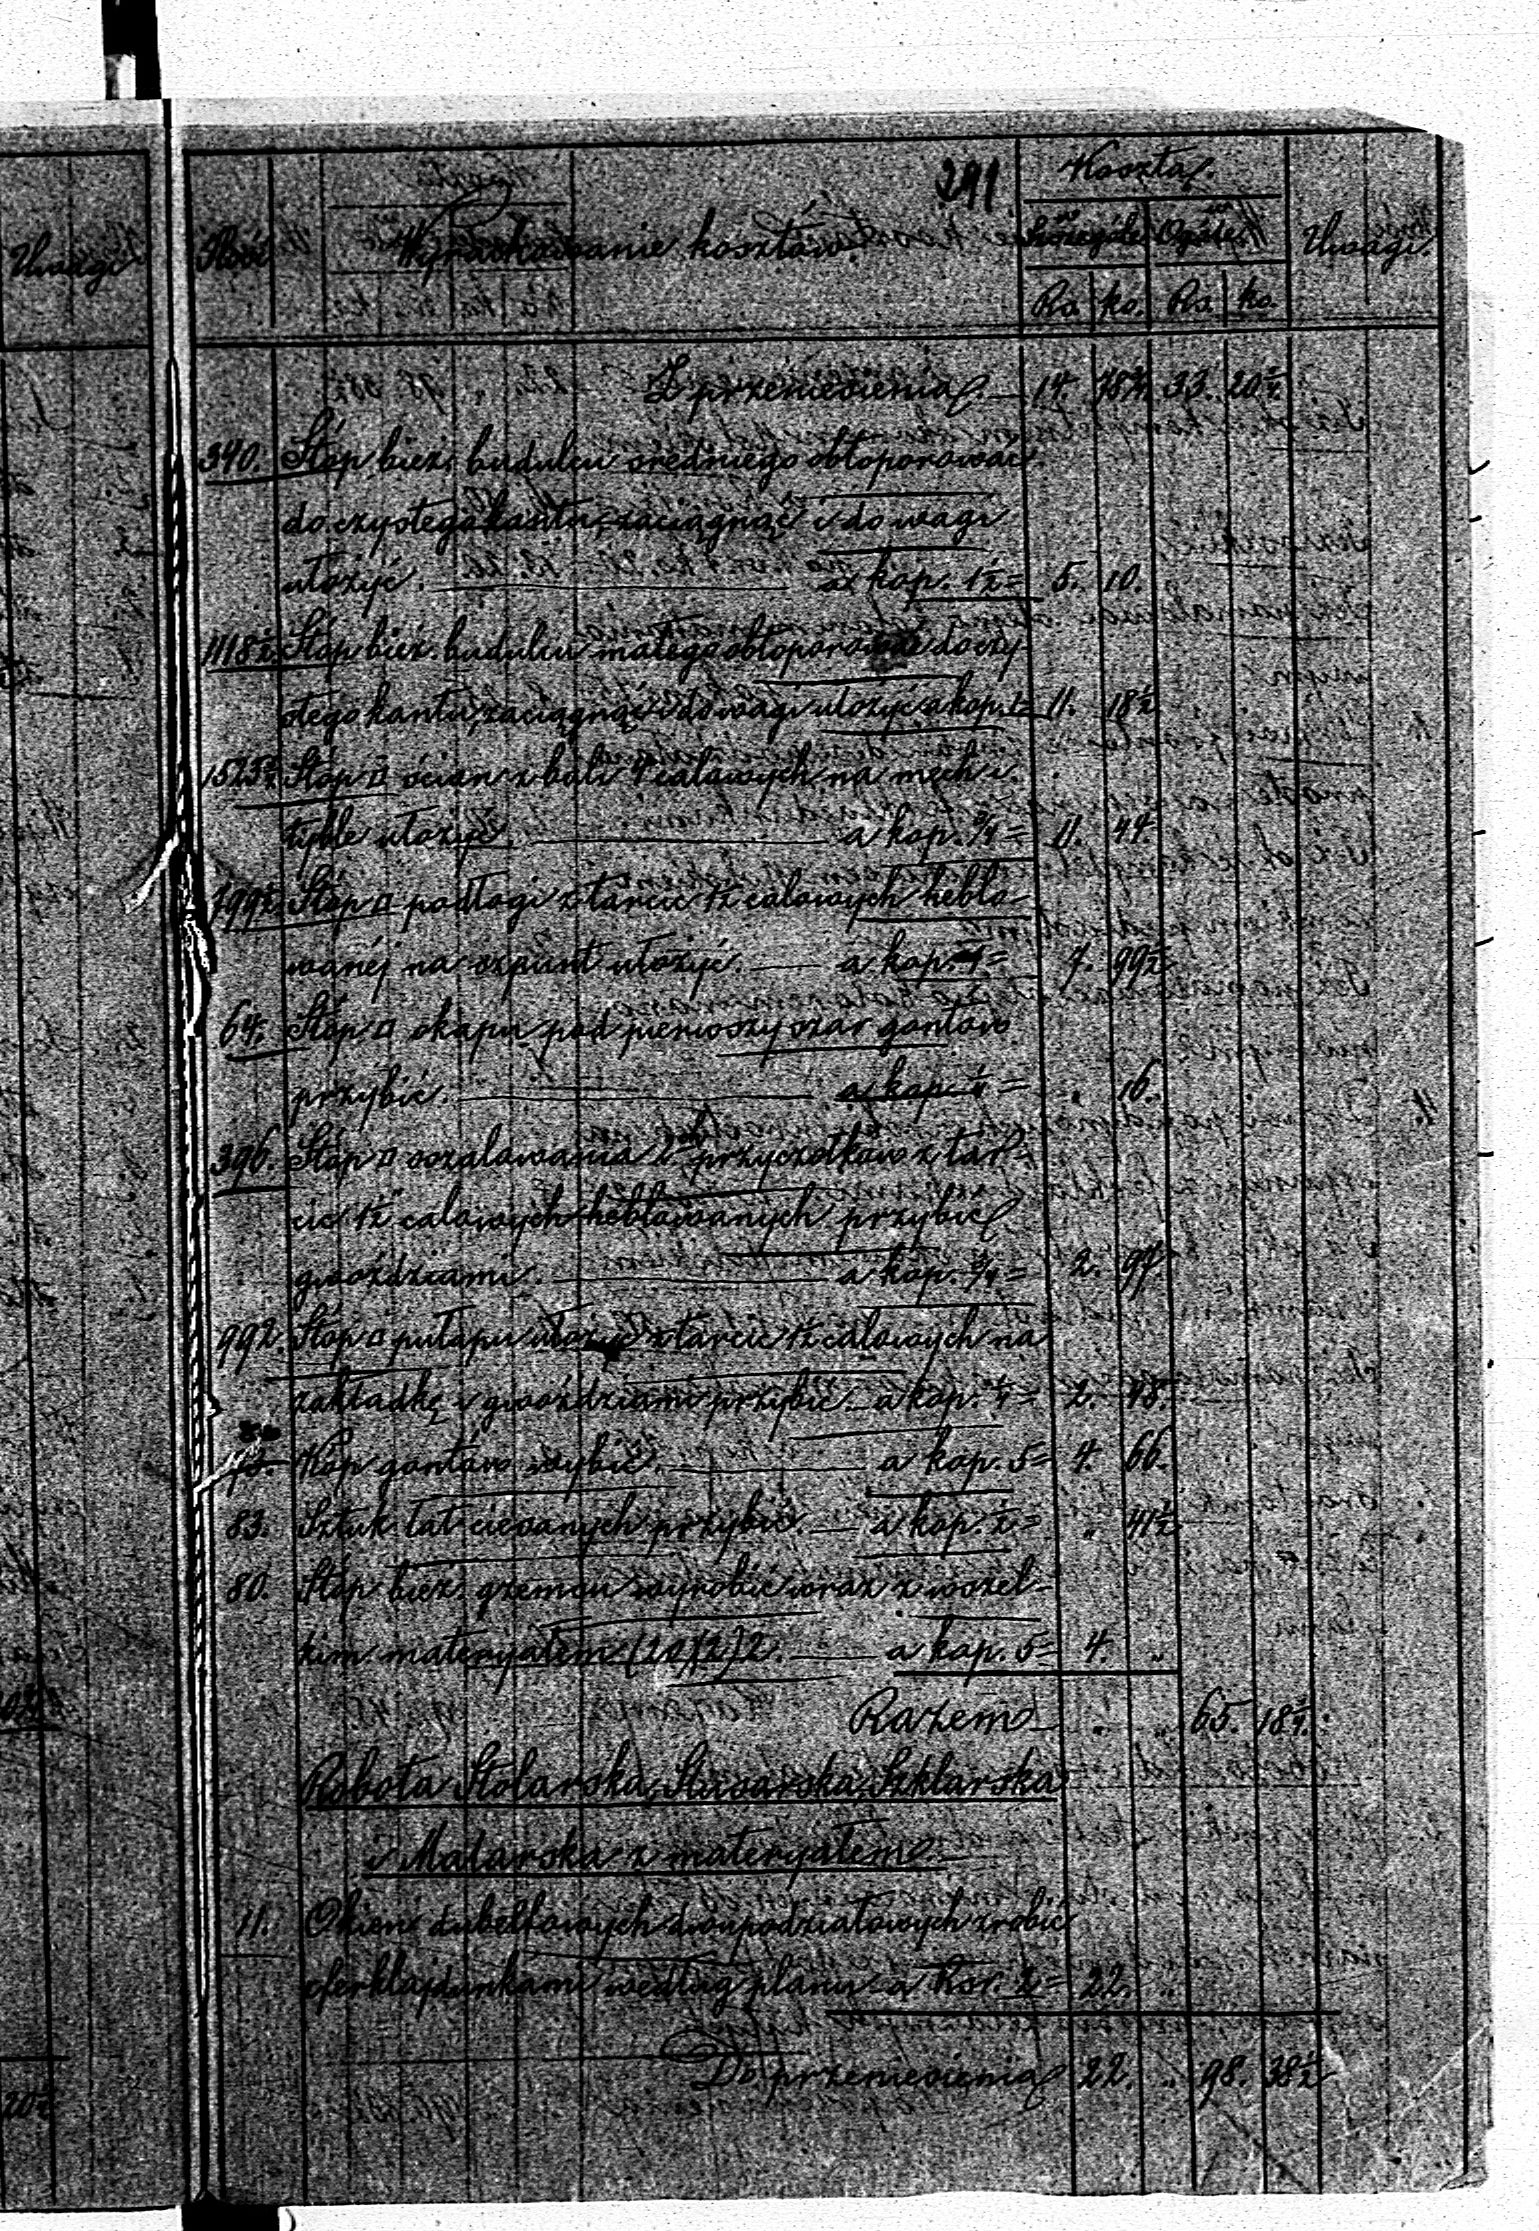 Uwagi
291
Ilość
Wyrachowanie kosztów.
Koszta.
Szczegóło
Ogóło
Uwagi.
Rs. ko. Rs. ko.
Z przeniesienia 14. 33. 20 1/4.
340. Stóp bież. budulcu średniego obtoporować
do czystego kantu, zaciągnąć i do wagi
ułożyć. a kop. 1 1/2 = 5. 10.
1118 1/2 Stóp bież. budulcu małego obtoporować do czy-
stego kantu, zaciągnąć i do wagi ułożyć a kop. 1 = 11. 18 1/2
Stóp □ ścian z bali 4 calowych na mech i
tyble ułożyć. a kop. 3/4 = 11. 44.
799 1/2 Stóp □ podłogi z tarcic 1 1/2 calowych heblo-
wanéj na szpunt ułożyć. a kop. 1 = 7. 99 1/2
64. Stóp □ okapu pod pierwszy szar gontów
przybić. a kop. 1/4 = „ 16.
396. Stóp □ oszalowania przyczółków z tar-
cic 1 1/2 calowych heblowanych przybić
gwoździami. a kop. 3/4 = 2. 97.
992. Stóp □ pułapu ułożyć z tarcic 1 1/2 calowych na
zakładkę i gwoździami przybić. a kop. 1/4 = 2. 48.
Kóp gontów wybić. a kop. 5 = 4. 66.
83. Sztuk łat ciesanych przybić. a kop. 1/2 = „ 41 1/2
80. Stóp bież. gzemcu wyrobić wraz z wszel-
kim materyałem (20)(2)2. a kop. 5 = 4. „
Razem „ „ 65. 18 1/4.
Robota Stolarska, Ślusarska, Szklarska
i Malarska z materyałem
11. Okien dubeltowych dwupodziałowych zrobić
z ferklajdunkami według planu a Rsr. 2 = 22. „
Do przeniesienia 22. „ 98. 38 1/2